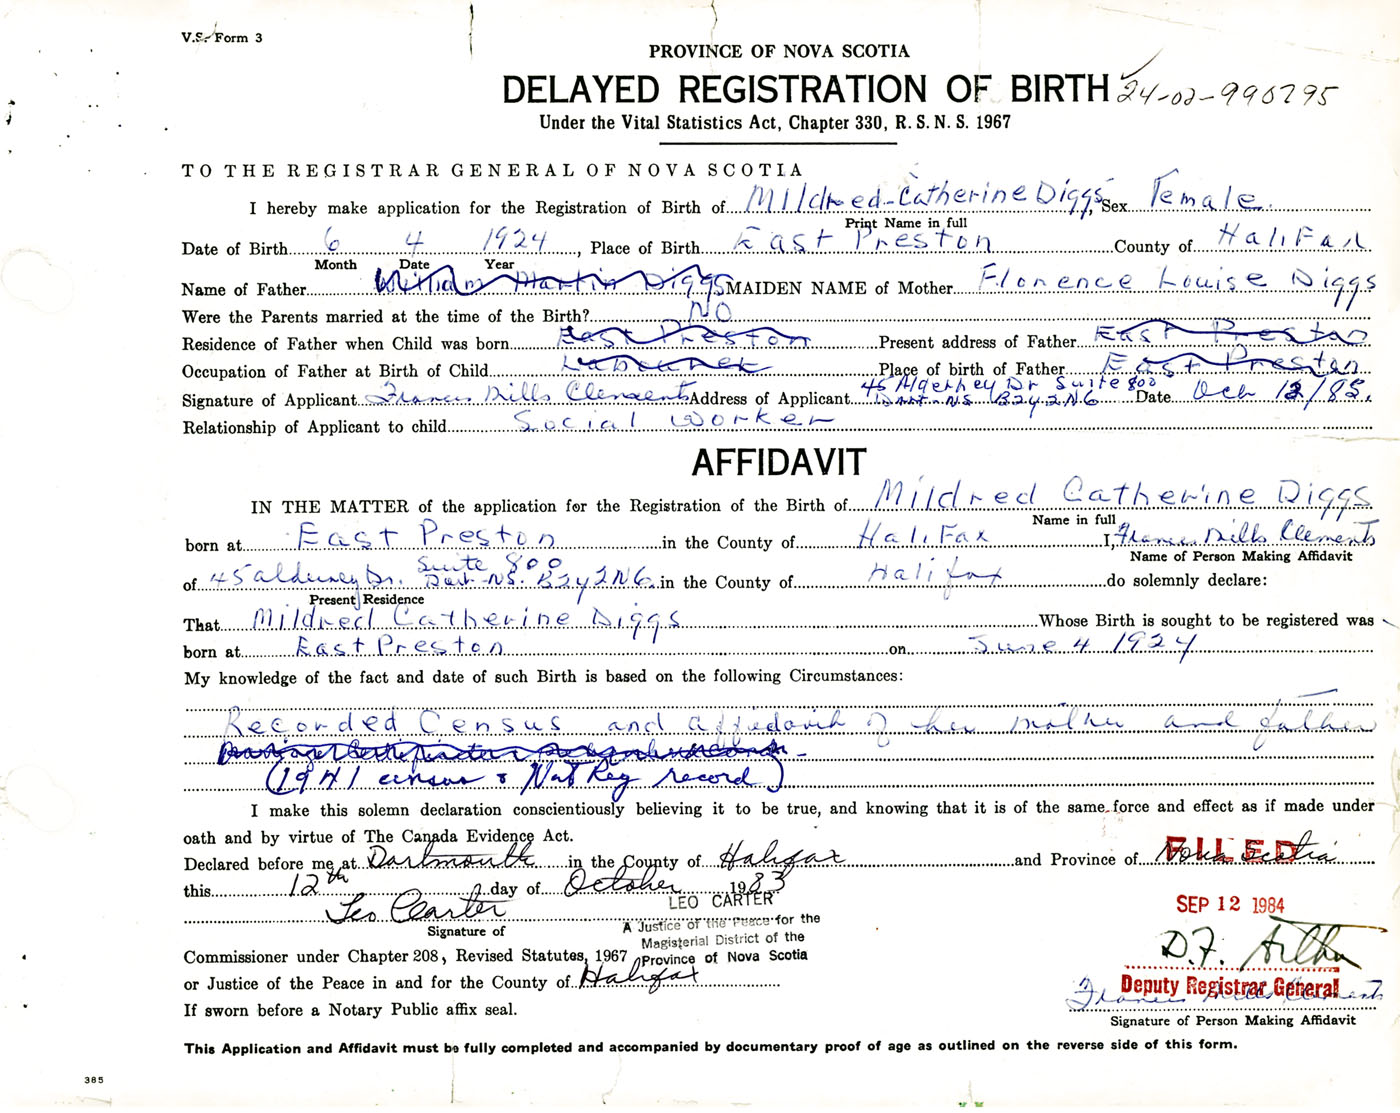 V.S. Form 3
PROVINCE OF NOVA SCOTIA
DELAYED REGISTRATION OF BIRTH 24-02-990795
Under the Vital Statistics Act, Chapter 330, R.S.N.S. 1967
TO THE REGISTRAR GENERAL OF NOVA SCOTIA
I hereby make application for the Registration of Birth of Mildred-Catherine Diggs, Sex Female.
Print Name in full
Date of Birth 6 4 1924, Place of Birth East Preston County of Halifax
Month Date Year
Name of Father William Martin Diggs MAIDEN NAME of Mother Florence Louise Diggs
Were the Parents married at the time of the Birth? NO
Residence of Father when Child was born East Preston Present address of Father East Preston
Occupation of Father at Birth of Child Labourer Place of birth of Father East Preston
Signature of Applicant Francis Mills Clements Address of Applicant 45 Alderney Dr Suite 800 Dart-NS B2Y2N6 Date Och 12/83.
Relationship of Applicant to child Social Worker
AFFIDAVIT
IN THE MATTER of the application for the Registration of the Birth of Mildred Catherine Diggs
Name in full
born at East Preston in the County of Halifax I, Francis Mills Clements
Name of Person Making Affidavit
of 45 Alderney Dr. Suite 800 Dart-NS. B2Y2N6 in the County of Halifax do solemnly declare:
Present Residence
That Mildred Catherine Diggs Whose Birth is sought to be registered was
born at East Preston on June 4 1924
My knowledge of the fact and date of such Birth is based on the following Circumstances:
Recorded Census and affidavit of her mother and father
(1941 census & Nat Reg record)
I make this solemn declaration conscientiously believing it to be true, and knowing that it is of the same force and effect as if made under
oath and by virtue of The Canada Evidence Act.
Declared before me at Dartmouth in the County of Halifax and Province of Nova Scotia
FILED
this 12th day of October 1983
SEP 12 1984
Leo Carter
LEO CARTER
Signature of
A Justice of the Peace for the
Magisterial District of the
Province of Nova Scotia
D.F.
Commissioner under Chapter 208, Revised Statutes, 1967
or Justice of the Peace in and for the County of Halifax
Deputy Registrar General
Francis Mills Clements
If sworn before a Notary Public affix seal.
Signature of Person Making Affidavit
This Application and Affidavit must be fully completed and accompanied by documentary proof of age as outlined on the reverse side of this form.
385